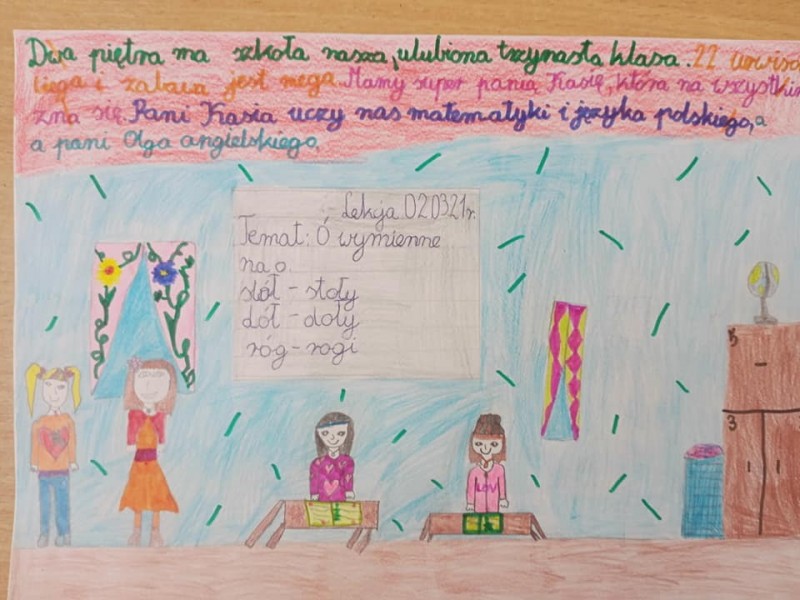 Dwa piętra ma szkoła nasza, ulubiona trzynasta klasa. 22
i zabawa jest mega. Mamy super panią Kasię, która na
zna się. Pani Kasia uczy nas matematyki i języka polskiego, a
a pani Olga angielskiego.
Lekcja 020321r.
Temat: Ó wymienne
na o.
stół - stoły
dół - doły
róg - rogi
5
3
LOV